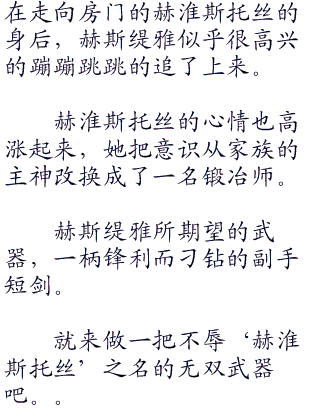 在走向房门的赫淮斯托丝的
身后，赫斯缇雅似乎很高兴
的蹦蹦跳跳的追了上来。
赫淮斯托丝的心情也高
涨起来，她把意识从家族的
主神改换成了一名锻冶师。
赫斯缇雅所期望的武
器，一柄锋利而刁钻的副手
短剑。
就来做一把不辱‘赫淮
斯托丝’之名的无双武器
吧。。